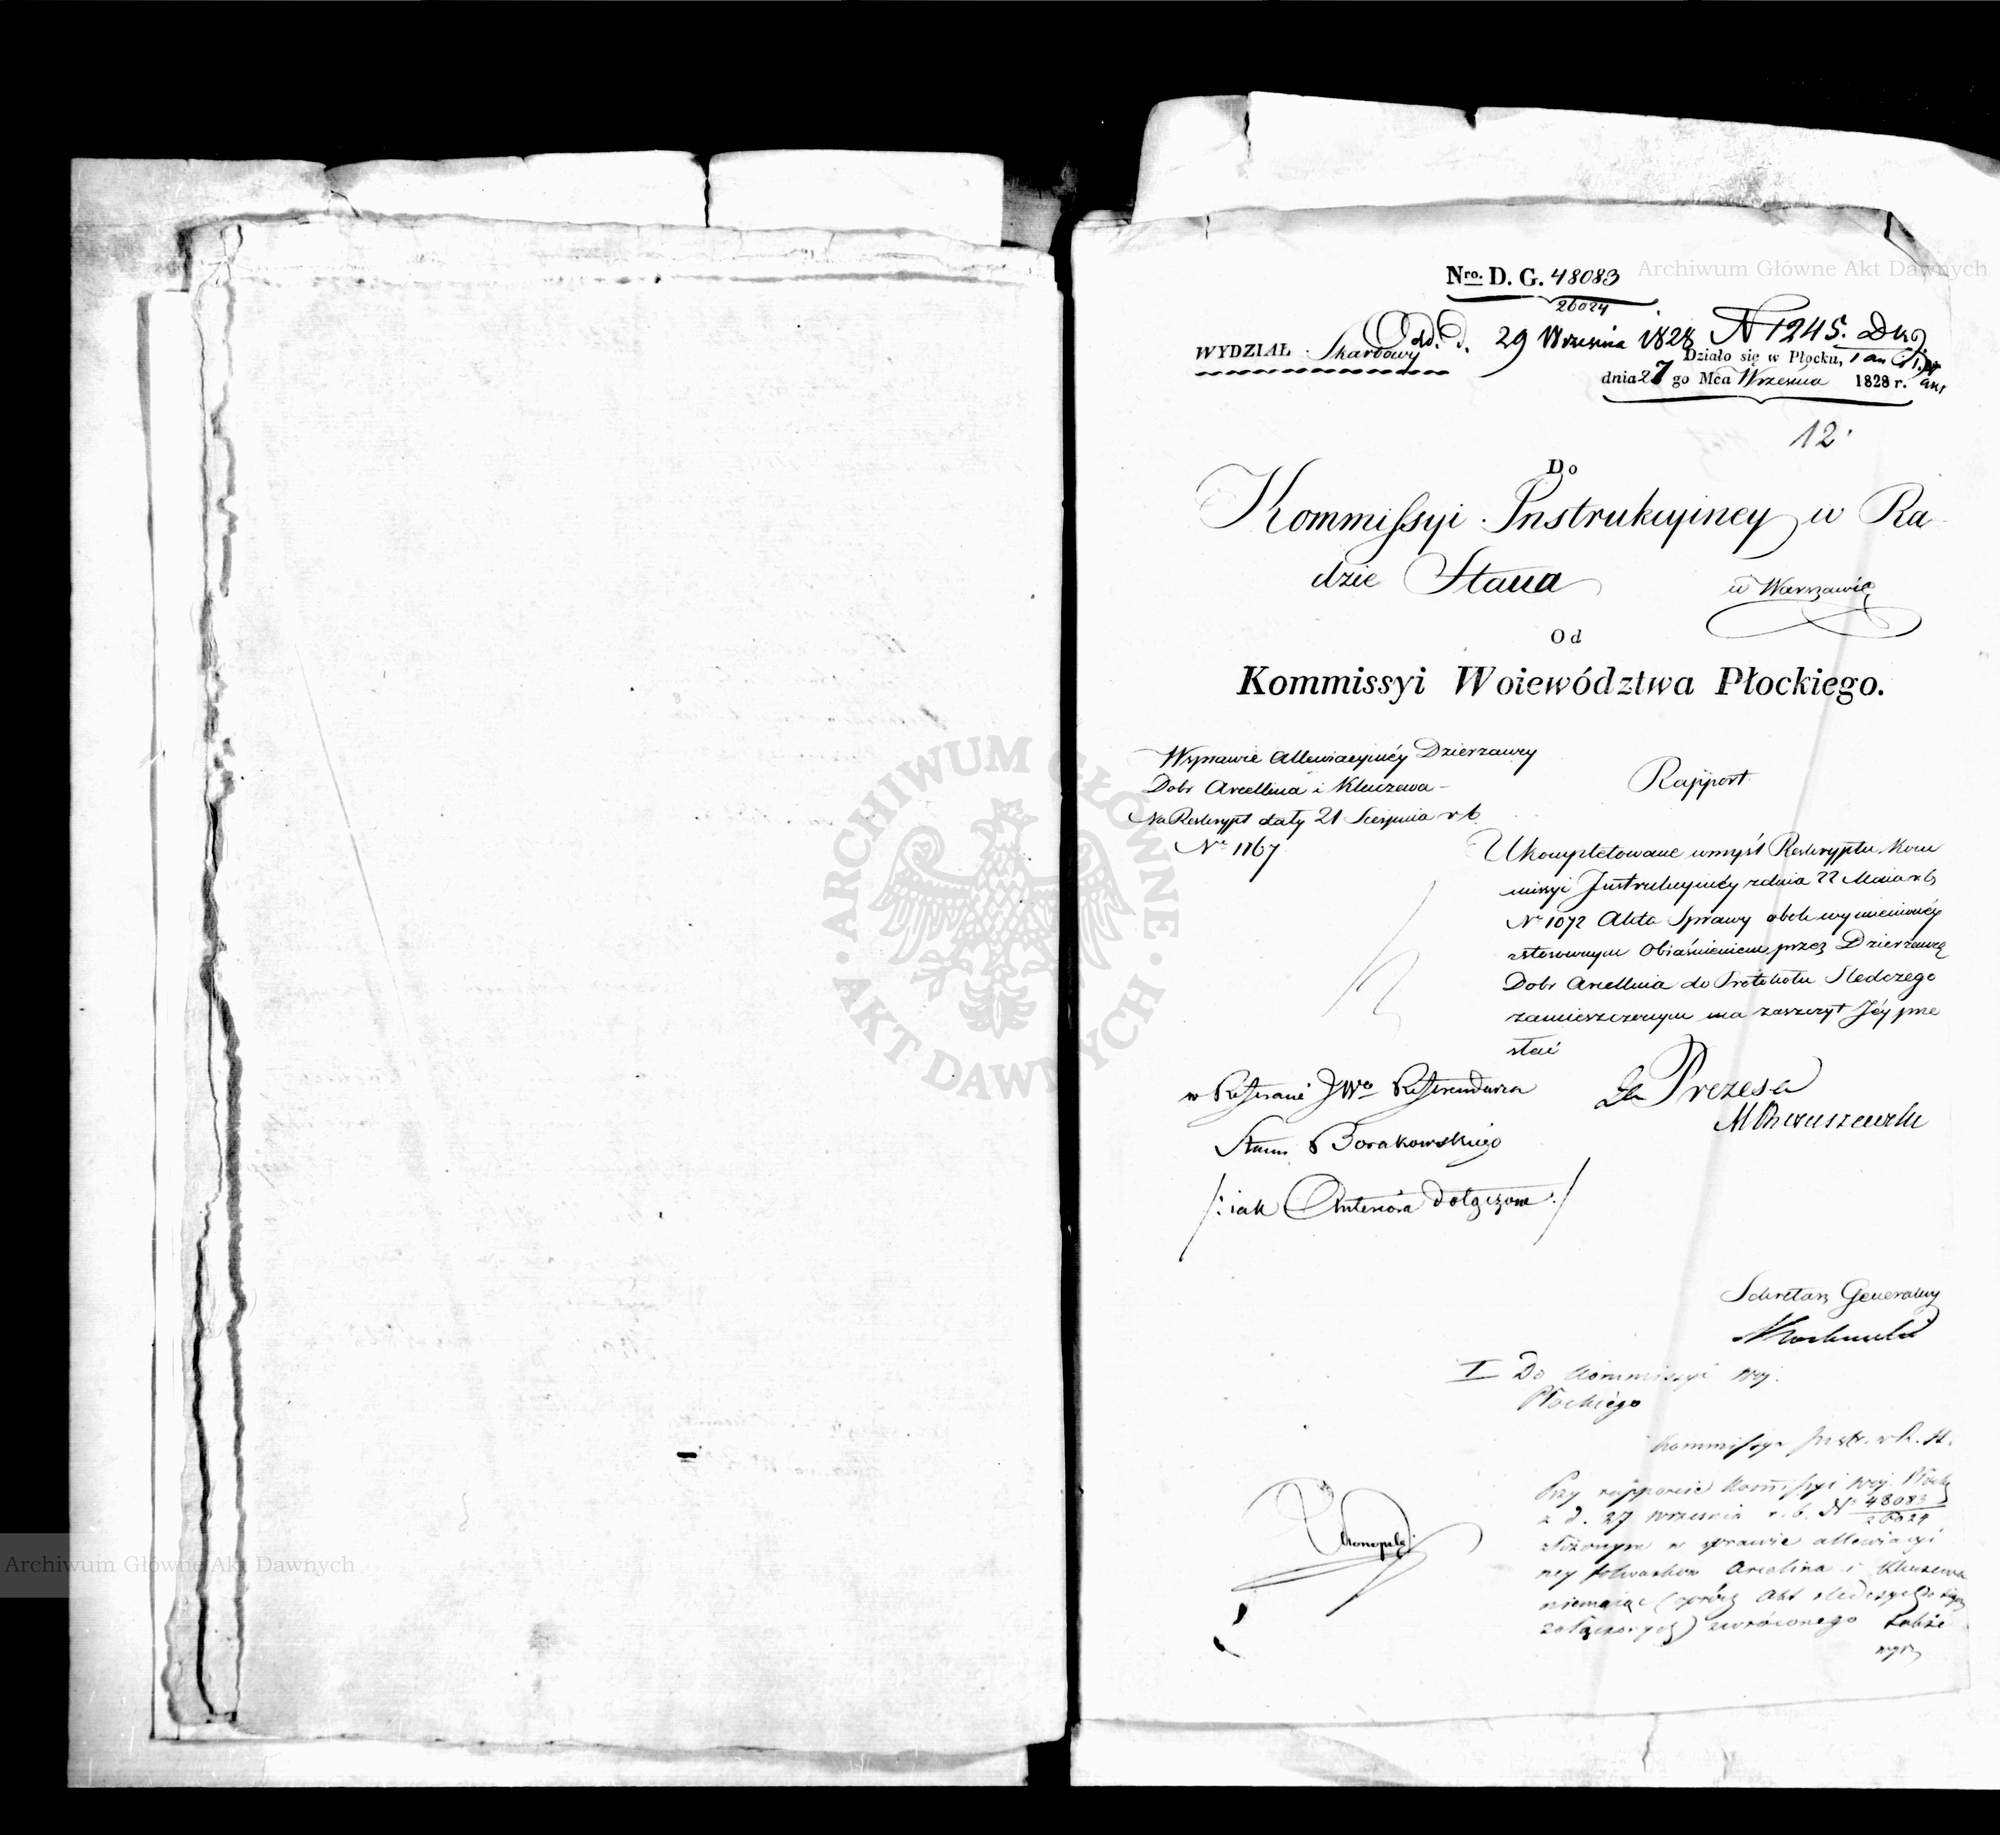 Nro. D. G. 48083
26024
WYDZIAŁ Skarbowy
Odd. d. 29 Września 1828 N 1245.
Działo się w Płocku,
dnia 27 go Mca Września 1828 r.
12.
Do
Kommissyi Instrukcyiney w Ra
dzie Stanu w Warszawie
Od
Kommissyi Woiewództwa Płockiego.
W sprawie Allewiacyinéy Dzierzawy
Dobr Arcellina i Kluczewa -
Na Reskrypt daty 21 Sierpnia r b.
No 1167
Rapport
Ukompletowane wmyśl Reskryptu Kom
missyi Instrukcyinéy z dnia 22 Maia r b
No 1072 Akta Sprawy obok wymienionéy
z stosownym Obiaśnieniem przez Dzierzawcę
Dobr Arcellina do Protokołu Sledczego
zamieszczonym ma zaszczyt Jéy prze
słać
w Referacie JWo Referendarza
Stanu Borakowskiego
/: iak Anteriora dołączone :/
Za Prezesa
Sekretarz Generalny
I Do Kommissyi Woj.
Płockiego
Kommissya Instr. w R. St.
Przy rapporcie Kommissyi Woj. Płock
z d. 27 Września r. b. N 48083
26024
złożonym w sprawie allewiacyi
ney folwarków Arcelina i Kluczewa
niemając (oprócz Akt sledczych
załączonych) zwróconego także